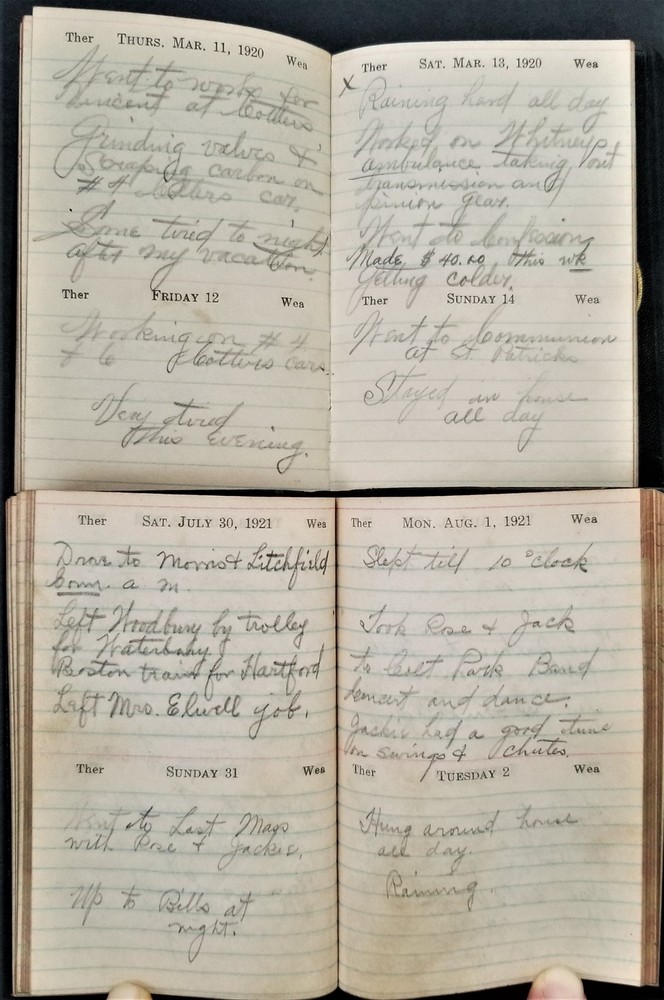 Ther THURS. MAR. 11, 1920 Wea
Went to work for
Vincent at Cotters'
Grinding valves &
Scraping carbon on
# 4 Cotters car.
Some tired to night
after my vacation.
Ther FRIDAY 12 Wea
Working on # 4
& 6 Cotters cars.
Very tired
this evening.
Ther SAT. MAR. 13, 1920 Wea
X Raining hard all day
Worked on Whitneys
ambulance taking out
transmission and
pinion gear.
Went to Confession
Made $ 40.00 this wk
Getting colder.
Ther SUNDAY 14 Wea
Went to Communion
at St. Patricks
Stayed in house
all day
Ther SAT. JULY 30, 1921 Wea
Drove to Morris & Litchfield
a m.
Left Woodbury by trolley
for Waterbury
Boston train for Hartford
Left Mrs. Elwell job.
Ther SUNDAY 31 Wea
Went to Last Mass
with Rose & Jackie.
Up to Bills at
night.
Ther MON. AUG. 1, 1921 Wea
Slept till 10 o'clock
Took Rose & Jack
to Colt Park Band
Concert and dance.
Jackie had a good time
on swings & chutes.
Ther TUESDAY 2 Wea
Hung around house
all day.
Raining.